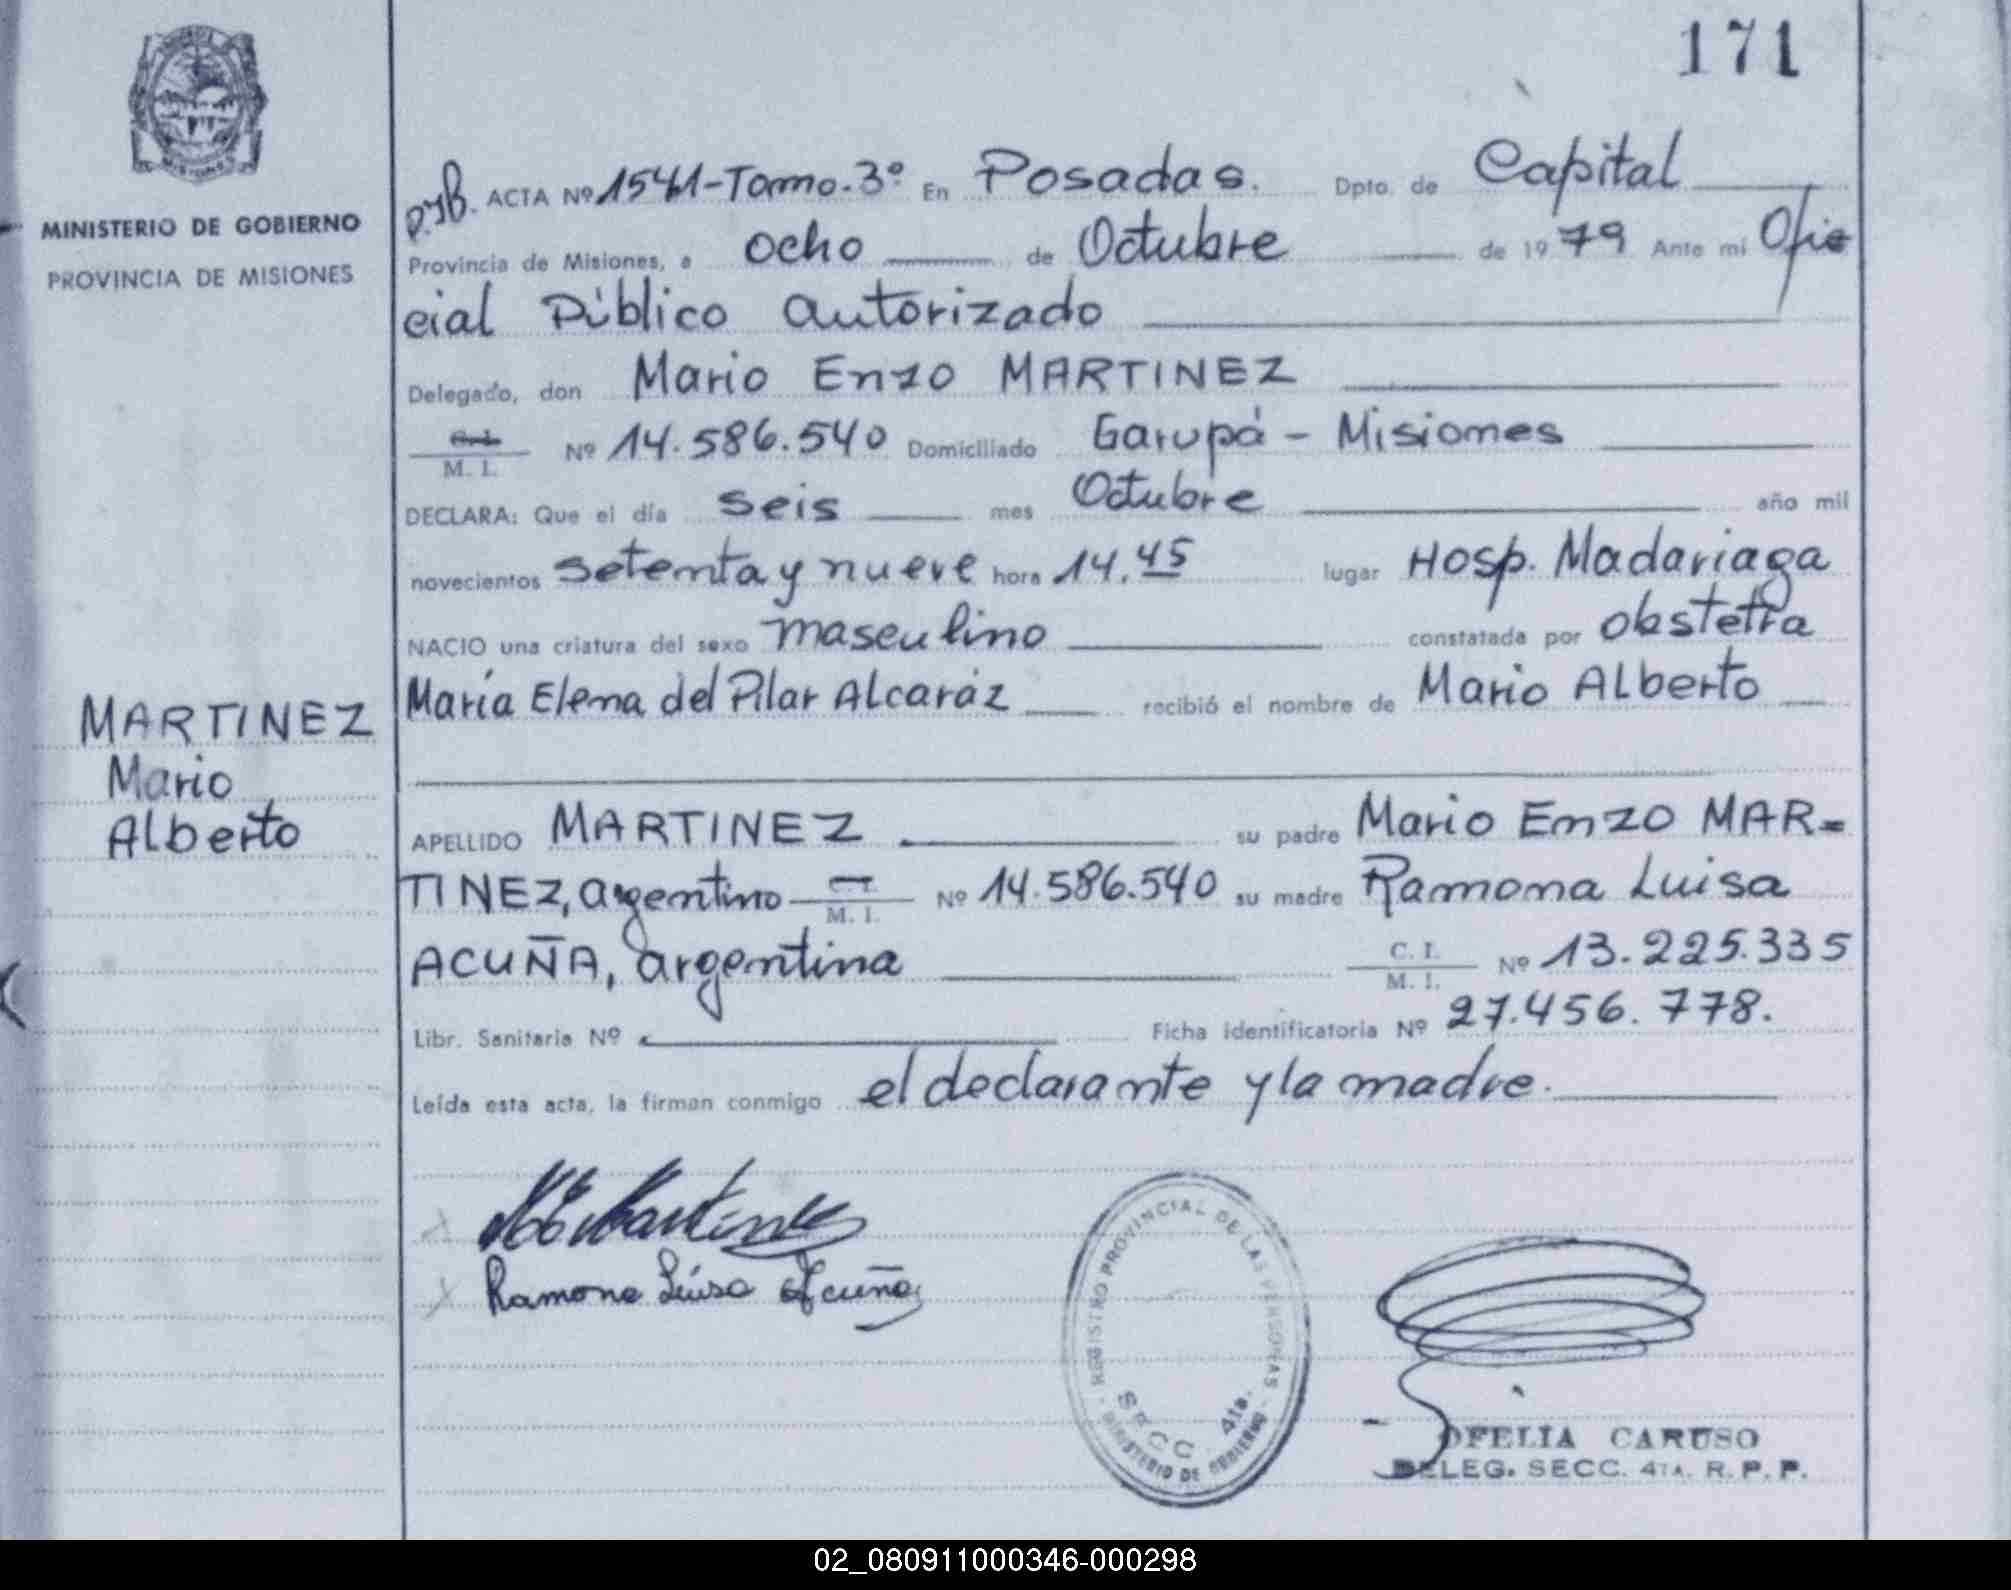 171
MINISTERIO DE GOBIERNO
PROVINCIA DE MISIONES
MARTINEZ
Mario
Alberto
ACTA Nº 1541-Tomo.3º En Posadas. Dpto. de Capital
Provincia de Misiones, a ocho de Octubre de 1979 Ante mi Ofi
cial Público autorizado
Delegado, don Mario Enzo MARTINEZ
M. I. Nº 14.586.540 Domiciliado Garupá - Misiones
DECLARA: Que el día seis mes Octubre año mil
novecientos setenta y nueve hora 14.45 lugar Hosp. Madariaga
NACIO una criatura del sexo masculino constatada por obstetra
María Elena del Pilar Alcaráz recibió el nombre de Mario Alberto
APELLIDO MARTINEZ su padre Mario Enzo MAR=
TINEZ, argentino M. I. Nº 14.586.540 su madre Ramona Luisa
ACUÑA, argentina C. I. M. I. Nº 13.225.335
Libr. Sanitaria Nº Ficha identificatoria Nº 27.456.778.
Leída esta acta, la firman conmigo el declarante y la madre.
Martinez
Ramona Luisa Acuña
REGISTRO PROVINCIAL DE LAS PERSONAS
SECC. 4ta.
MINISTERIO DE GOBIERNO
OFELIA CARUSO
DELEG. SECC. 4TA. R. P. P.
02_080911000346-000298